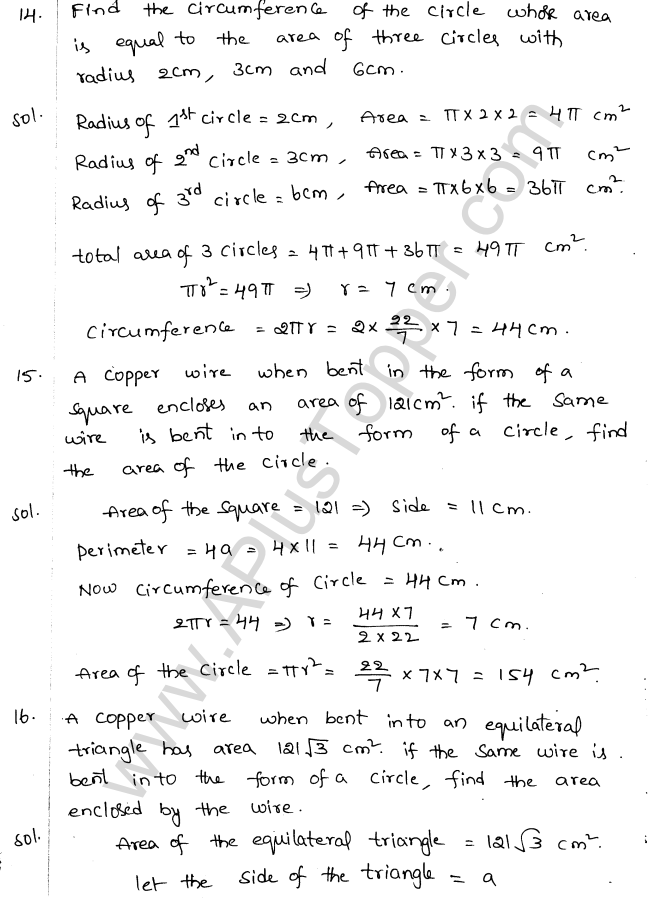 14. Find the circumference of the circle whose area
is equal to the area of three circles with
radius 2cm, 3cm and 6cm.
Sol. Radius of 1st circle = 2cm, Area = π×2×2 = 4π cm²
Radius of 2nd circle = 3cm, Area = π×3×3 = 9π cm²
Radius of 3rd circle = 6cm, Area = π×6×6 = 36π cm².
total area of 3 circles = 4π+9π+36π = 49π cm².
πr² = 49π ⇒ r = 7 cm.
Circumference = 2πr = 2× 22/7 × 7 = 44 cm.
15. A copper wire when bent in the form of a
square encloses an area of 121cm². if the same
wire is bent in to the form of a circle, find
the area of the circle.
Sol. Area of the square = 121 ⇒ side = 11 cm.
perimeter = 4a = 4×11 = 44 cm.
Now circumference of circle = 44 cm.
2πr = 44 ⇒ r = 44×7 / 2×22 = 7 cm.
Area of the circle = πr² = 22/7 × 7×7 = 154 cm².
16. A copper wire when bent into an equilateral
triangle has area 121√3 cm². if the same wire is
bent in to the form of a circle, find the area
enclosed by the wire.
Sol. Area of the equilateral triangle = 121√3 cm².
let the side of the triangle = a
www.APlusTopper.com